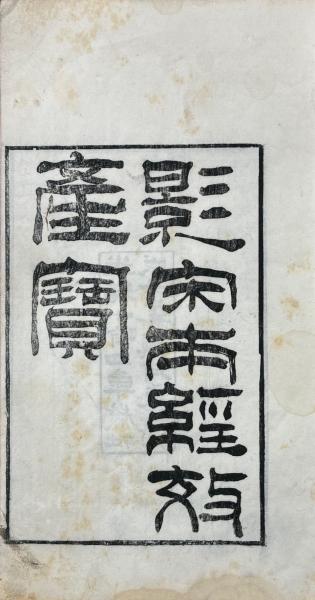 影宋本經效
產寶